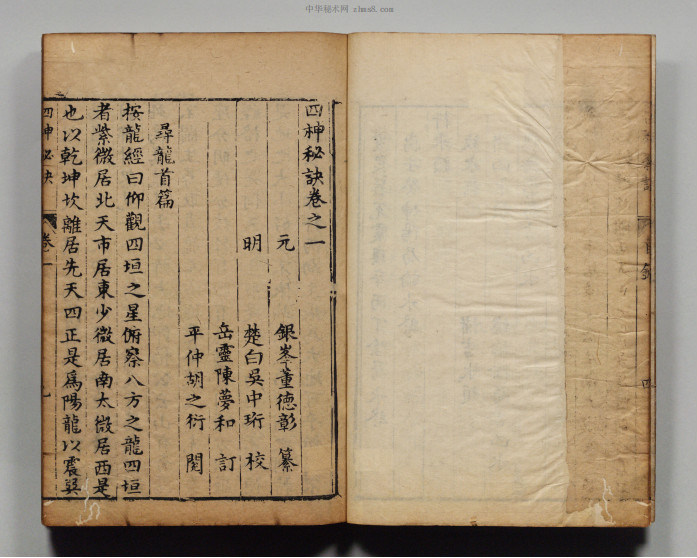 中华秘术网 zhms8.com
四神秘訣卷之一
元 銀峯董德彰 纂
明 楚白吳中珩 校
岳靈陳夢和 訂
平仲胡之衍 閱
尋龍首篇
按龍經曰仰觀四垣之星俯察八方之龍四垣
者紫微居北天市居東少微居南太微居西是
也以乾坤坎離居先天四正是爲陽龍以震巽
四神秘訣 卷一